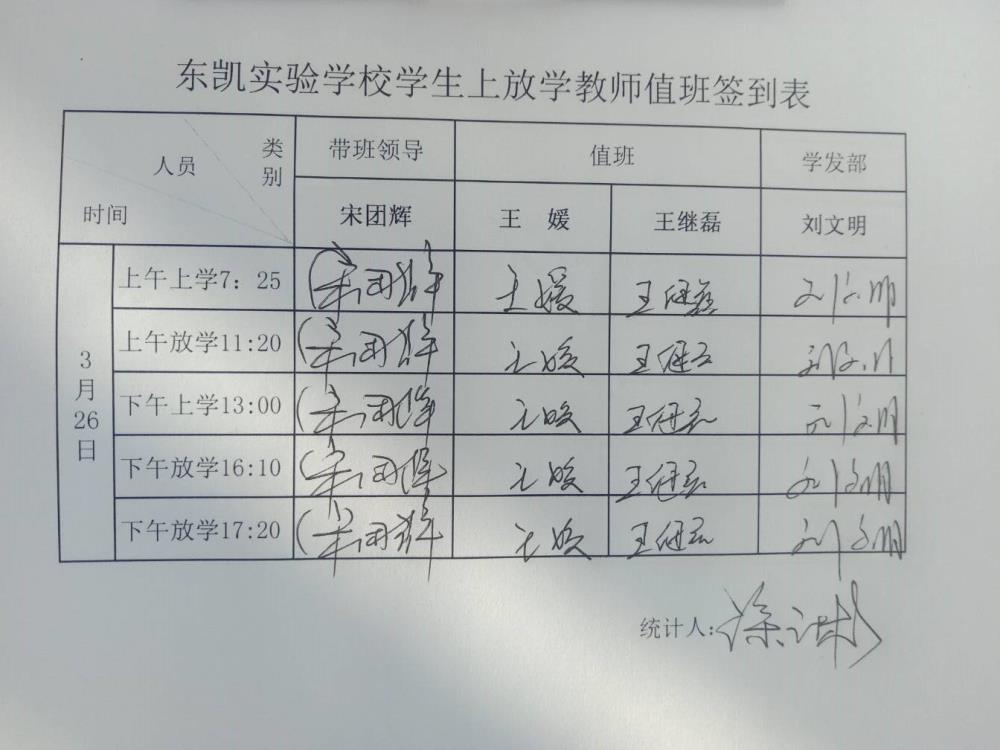 东凯实验学校学生上放学教师值班签到表
人员 类别 时间 带班领导 值班 学发部
宋团辉 王 媛 王继磊 刘文明
3月26日
上午上学7：25 宋团辉 王媛 王继磊 刘文明
上午放学11:20 宋团辉 王媛 王继磊 刘文明
下午上学13:00 宋团辉 王媛 王继磊 刘文明
下午放学16:10 宋团辉 王媛 王继磊 刘文明
下午放学17:20 宋团辉 王媛 王继磊 刘文明
统计人: